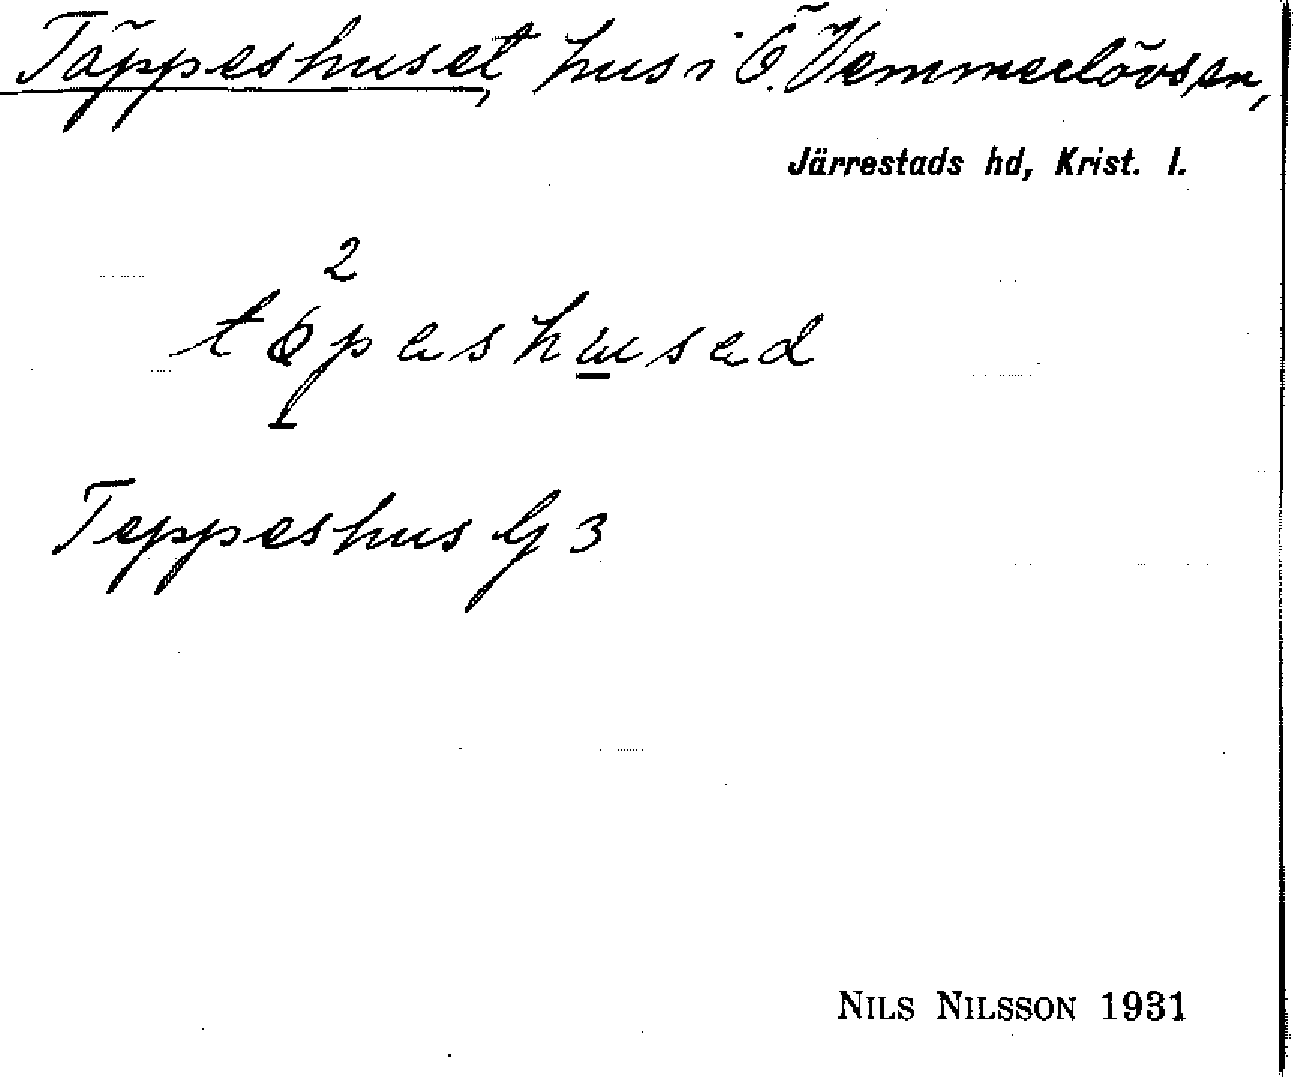 Täppeshuset, hus i Ö. Vemmerlövs sn,
Järrestads hd, Krist. l.
2
töpeshused
Teppeshus G 3
NILS NILSSON 1931